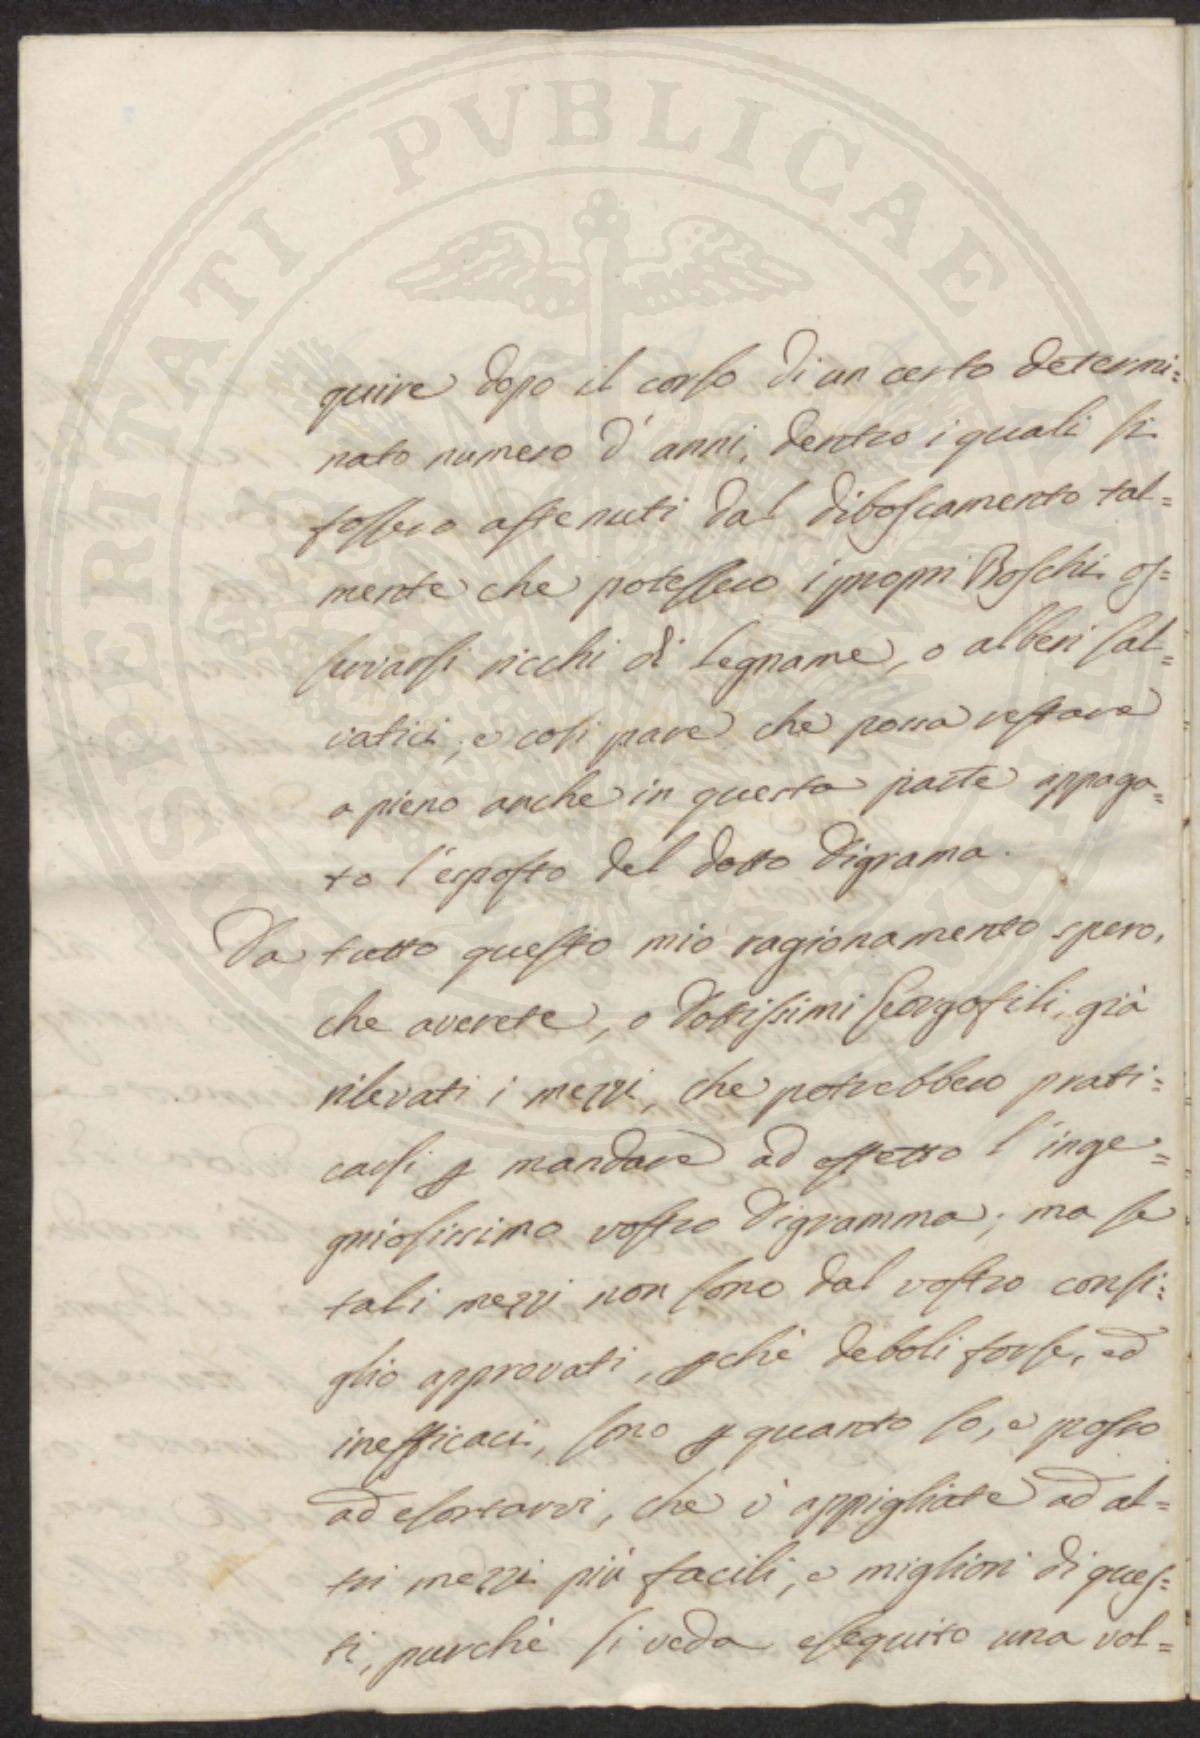 PROSPERITATI PVBLICAE
quire dopo il corso di un certo determi=
nato numero d'anni, dentro i quali si
fossero astenuti dal diboscamento tal=
mente che potessero i propri Boschi os=
servarsi ricchi di Legname, o alberi sal=
vatici, e così pare che possa restare
a pieno anche in questa parte appaga=
to l'esposto del dotto Digrama.
Da tutto questo mio ragionamento spero,
che averete, o Dottissimi Georgofili, già
rilevati i mezzi, che potrebbero prati=
carsi p mandare ad effetto l'inge=
gniosissimo vostro Digramma; ma se
tali mezzi non sono dal vostro consi=
glio approvati, pchè deboli forse, ed
inefficaci, sono p quanto so, e posso
ad esortarvi, che v'appigliate ad al=
tri mezzi più facili, e migliori di ques=
ti, purchè si veda eseguito una vol=